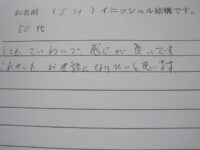 お名前 (S H) イニッシュル結構です。
50代
とても ていねいで、感じが 良いです
これからも お世話に なりたいと思います。